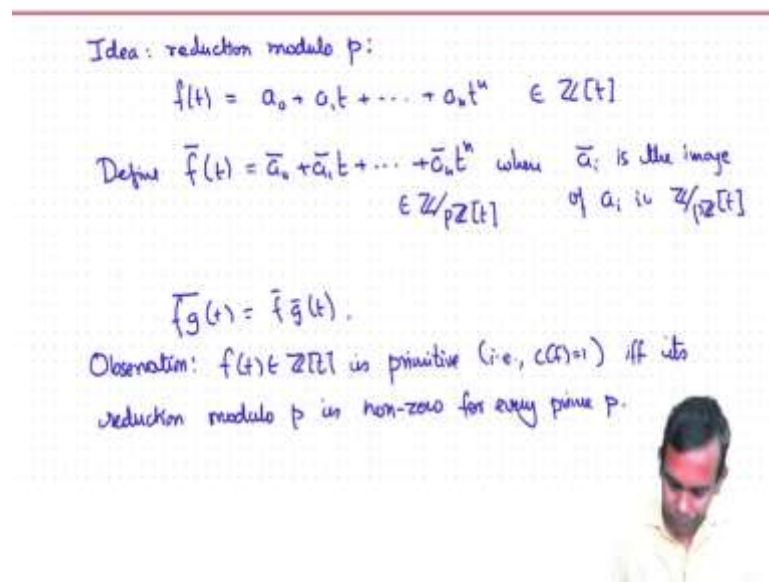 Idea: reduction modulo p:
f(t) = a₀ + a₁t + ⋯ + aₙtⁿ ∈ ℤ[t]
Define f̄(t) = ā₀ + ā₁t + ⋯ + āₙtⁿ where āᵢ is the image
∈ ℤ/pℤ[t] of aᵢ in ℤ/pℤ[t]
f̅g̅(t) = f̄ ḡ(t).
Observation: f(t) ∈ ℤ[t] is primitive (i.e., c(f)=1) iff its
reduction modulo p is non-zero for every prime p.